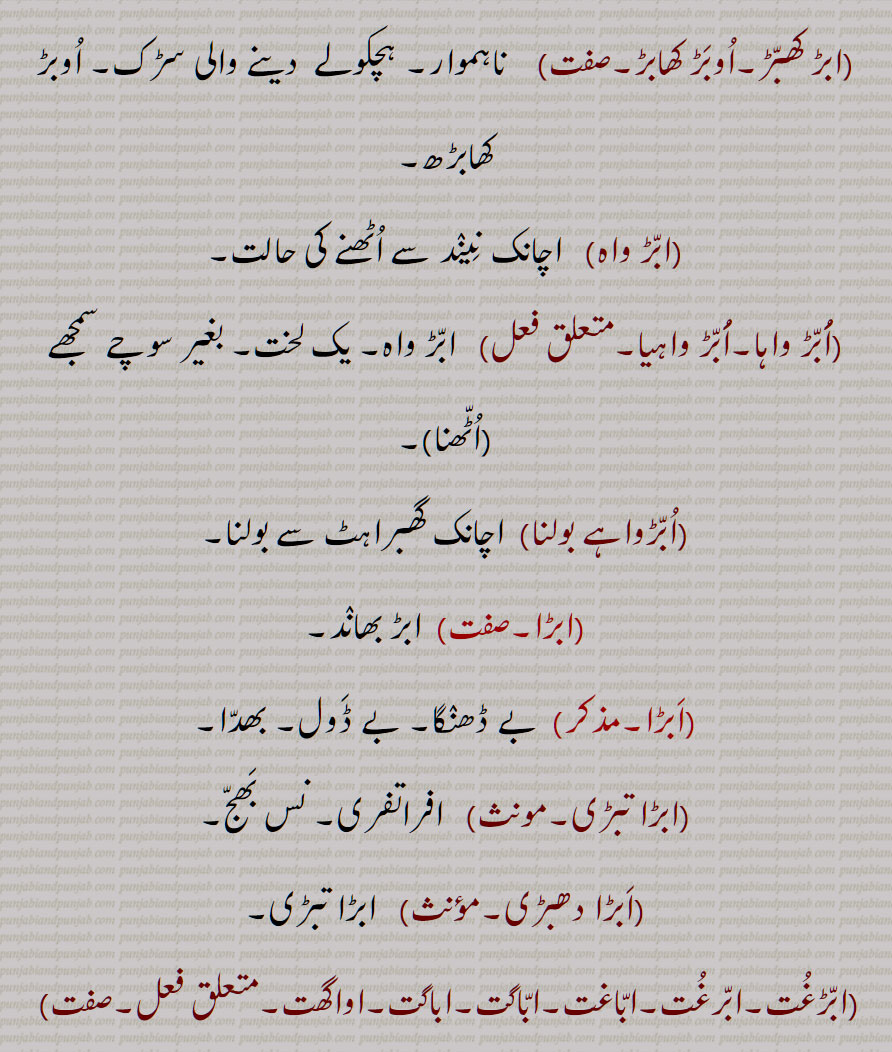 (ابڑ کھبّڑ۔اُوبَڑ کھابڑ۔صفت) ناہموار۔ ہچکولے دینے والی سڑک۔ اُوبڑ
کھابڑھ۔
(ابّڑ واہ) اچانک نِینْد سے اُٹھنے کی حالت۔
(اُبّڑ واہا۔اُبّڑ واہیا۔متعلق فعل) ابّڑ واہ۔ یک لخت۔ بغیر سوچے سمجھے
(اُٹّھنا)۔
(اُبّڑواہے بولنا) اچانک گھبراہٹ سے بولنا۔
(ابڑا۔صفت) ابڑ بھانْد۔
(اَبڑا۔مذکر) بے ڈھنْگا۔ بے ڈَول۔ بھدّا۔
(ابڑا تبڑی۔مونث) افراتفری۔ نس بَھجّ۔
(اَبڑا دھبڑی۔مؤنث) ابڑا تبڑی۔
(ابّڑغُت۔ابّرغُت۔ابّاغت۔ابّاگت۔اباگت۔اواگھت۔متعلق فعل۔صفت)